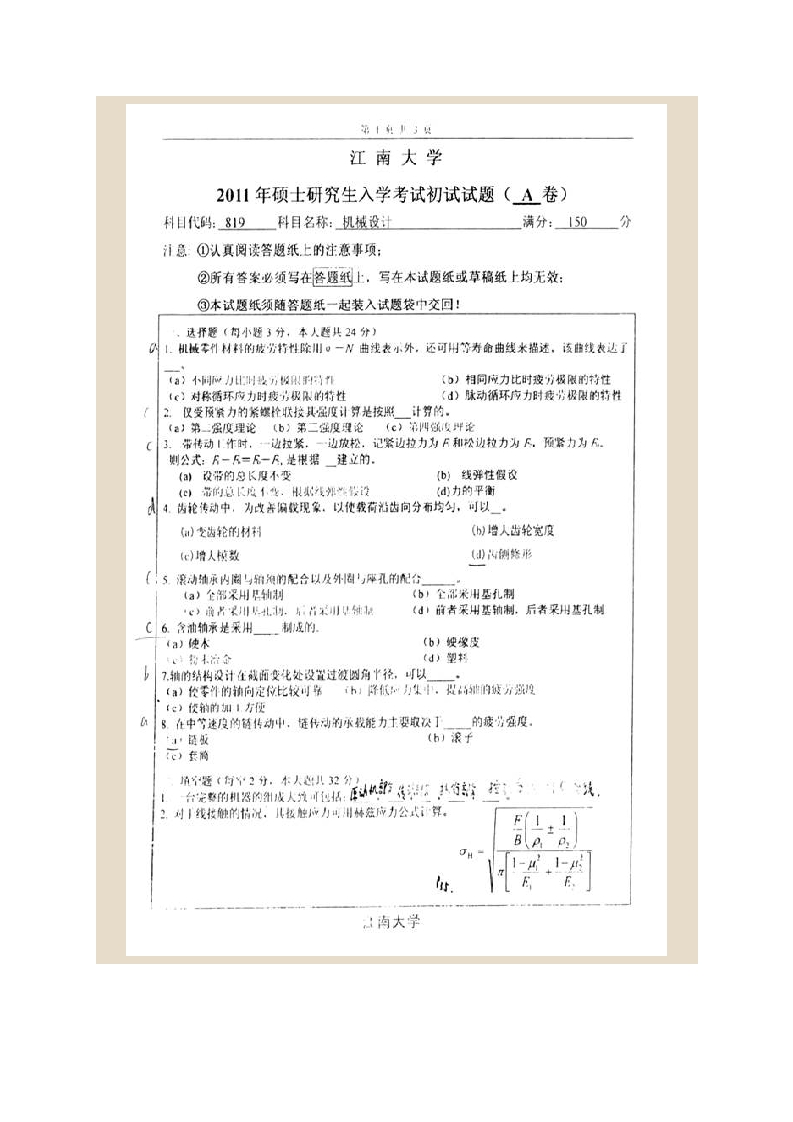 第1页共3页
江南大学
2011年硕士研究生入学考试初试试题（ A 卷）
科目代码: 819 科目名称: 机械设计 满分: 150 分
注意: ①认真阅读答题纸上的注意事项;
②所有答案必须写在答题纸上，写在本试题纸或草稿纸上均无效;
③本试题纸须随答题纸一起装入试题袋中交回!
一、选择题（每小题3分，本大题共24分）
a 1. 机械零件材料的疲劳特性除用σ－N 曲线表示外，还可用等寿命曲线来描述，该曲线表达了
___。
（a）不同应力比时疲劳极限的特性 （b）相同应力比时疲劳极限的特性
（c）对称循环应力时疲劳极限的特性 （d）脉动循环应力时疲劳极限的特性
2. 仅受预紧力的紧螺栓联接其强度计算是按照___计算的。
（a）第一强度理论 （b）第二强度理论 （c）第四强度理论
c 3. 带传动工作时，一边拉紧，一边放松，记紧边拉力为F₁和松边拉力为F₂，预紧力为F₀。
则公式: F₁－F₀=F₀－F₂是根据__建立的。
(a) 设带的总长度不变 (b) 线弹性假设
(c) 带的总长度不变，根据线弹性假设 (d)力的平衡
d 4. 齿轮传动中，为改善偏载现象，以使载荷沿齿向分布均匀，可以__。
(a)变齿轮的材料 (b)增大齿轮宽度
(c)增大模数 (d)齿侧修形
c 5. 滚动轴承内圈与轴颈的配合以及外圈与座孔的配合______。
（a）全部采用基轴制 （b）全部采用基孔制
（c）前者采用基孔制，后者采用基轴制 （d）前者采用基轴制，后者采用基孔制
c 6. 含油轴承是采用____制成的。
（a）硬木 （b）硬橡皮
（c）粉末冶金 （d）塑料
b 7.轴的结构设计在截面变化处设置过渡圆角半径，可以_____。
（a）使零件的轴向定位比较可靠 （b）降低应力集中，提高轴的疲劳强度
（c）使轴的加工方便
a 8. 在中等速度的链传动中，链传动的承载能力主要取决于_____的疲劳强度。
（a）链板 （b）滚子
（c）套筒
二、填空题（每空2分，本大题共32分）
1. 一台完整的机器的组成大致可包括: 原动机部分 传动部分 执行部分
2. 对于线接触的情况，其接触应力可用赫兹应力公式计算。
σH = √( F/B (1/ρ₁ ± 1/ρ₂) / π[ (1-μ₁²)/E₁ + (1-μ₂²)/E₂ ] )
江南大学